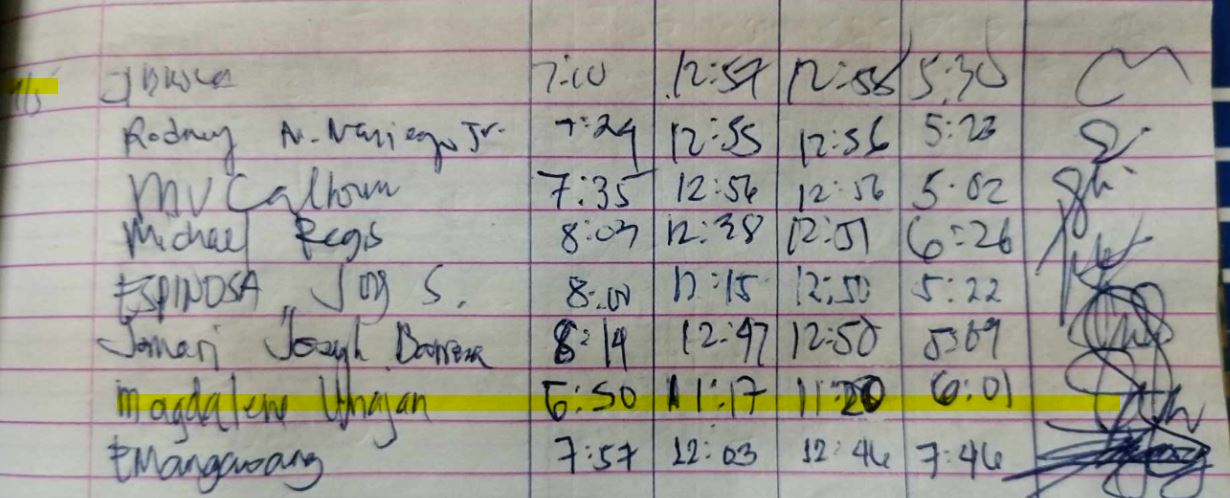 7:00 12:57 12:58 5:30
Rodney N. Jr. 7:24 12:55 12:56 5:23
MV Calhoun 7:35 12:56 12:56 5:02
Michael Regis 8:03 12:38 12:51 6:26
ESPINOSA, Jon S. 8:00 12:15 12:50 5:22
Jomari Joseph 8:14 12:47 12:50 5:09
Magdalene Ungajan 6:50 11:17 11:20 6:01
EMangawang 7:57 12:03 12:46 7:46